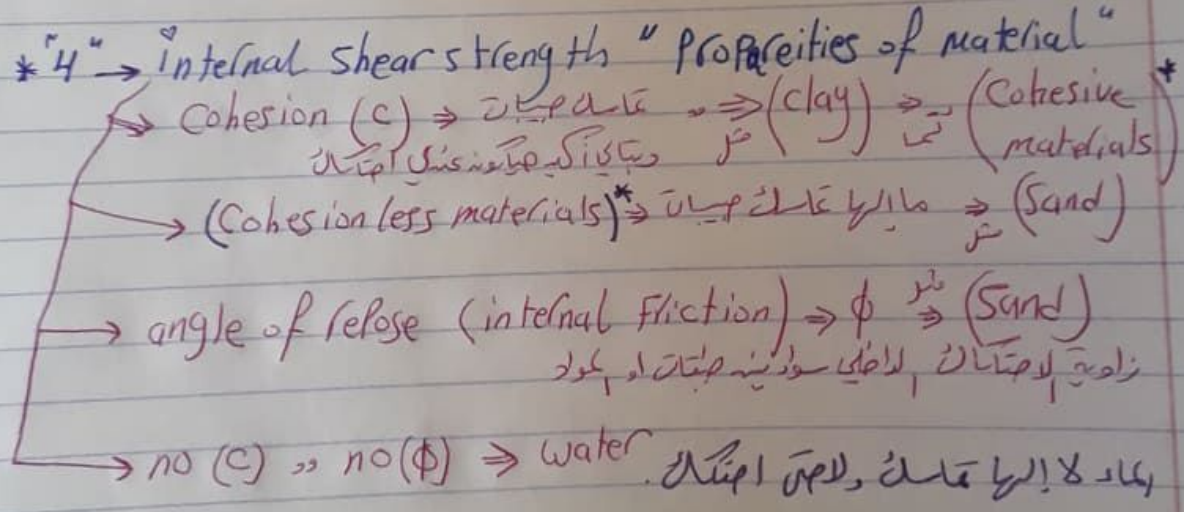 * "4" → internal shear strength "Propareities of material"
→ Cohesion (C) ⇒ تماسك حبيبات ⇒ مثل (Clay) ⇒ (Cohesive materials) *
احتكاك
→ (Cohesionless materials)* ⇒ ما إلها تماسك حبيبات ⇒ مثل (Sand)
→ angle of repose (internal Friction) ⇒ ϕ ⇒ مثل (Sand)
زاوية الاحتكاك الداخلي سواء بين حبيبات او مواد
→ no (C) ,, no (ϕ) ⇒ water الماء لا إلها تماسك ولا حتى احتكاك.